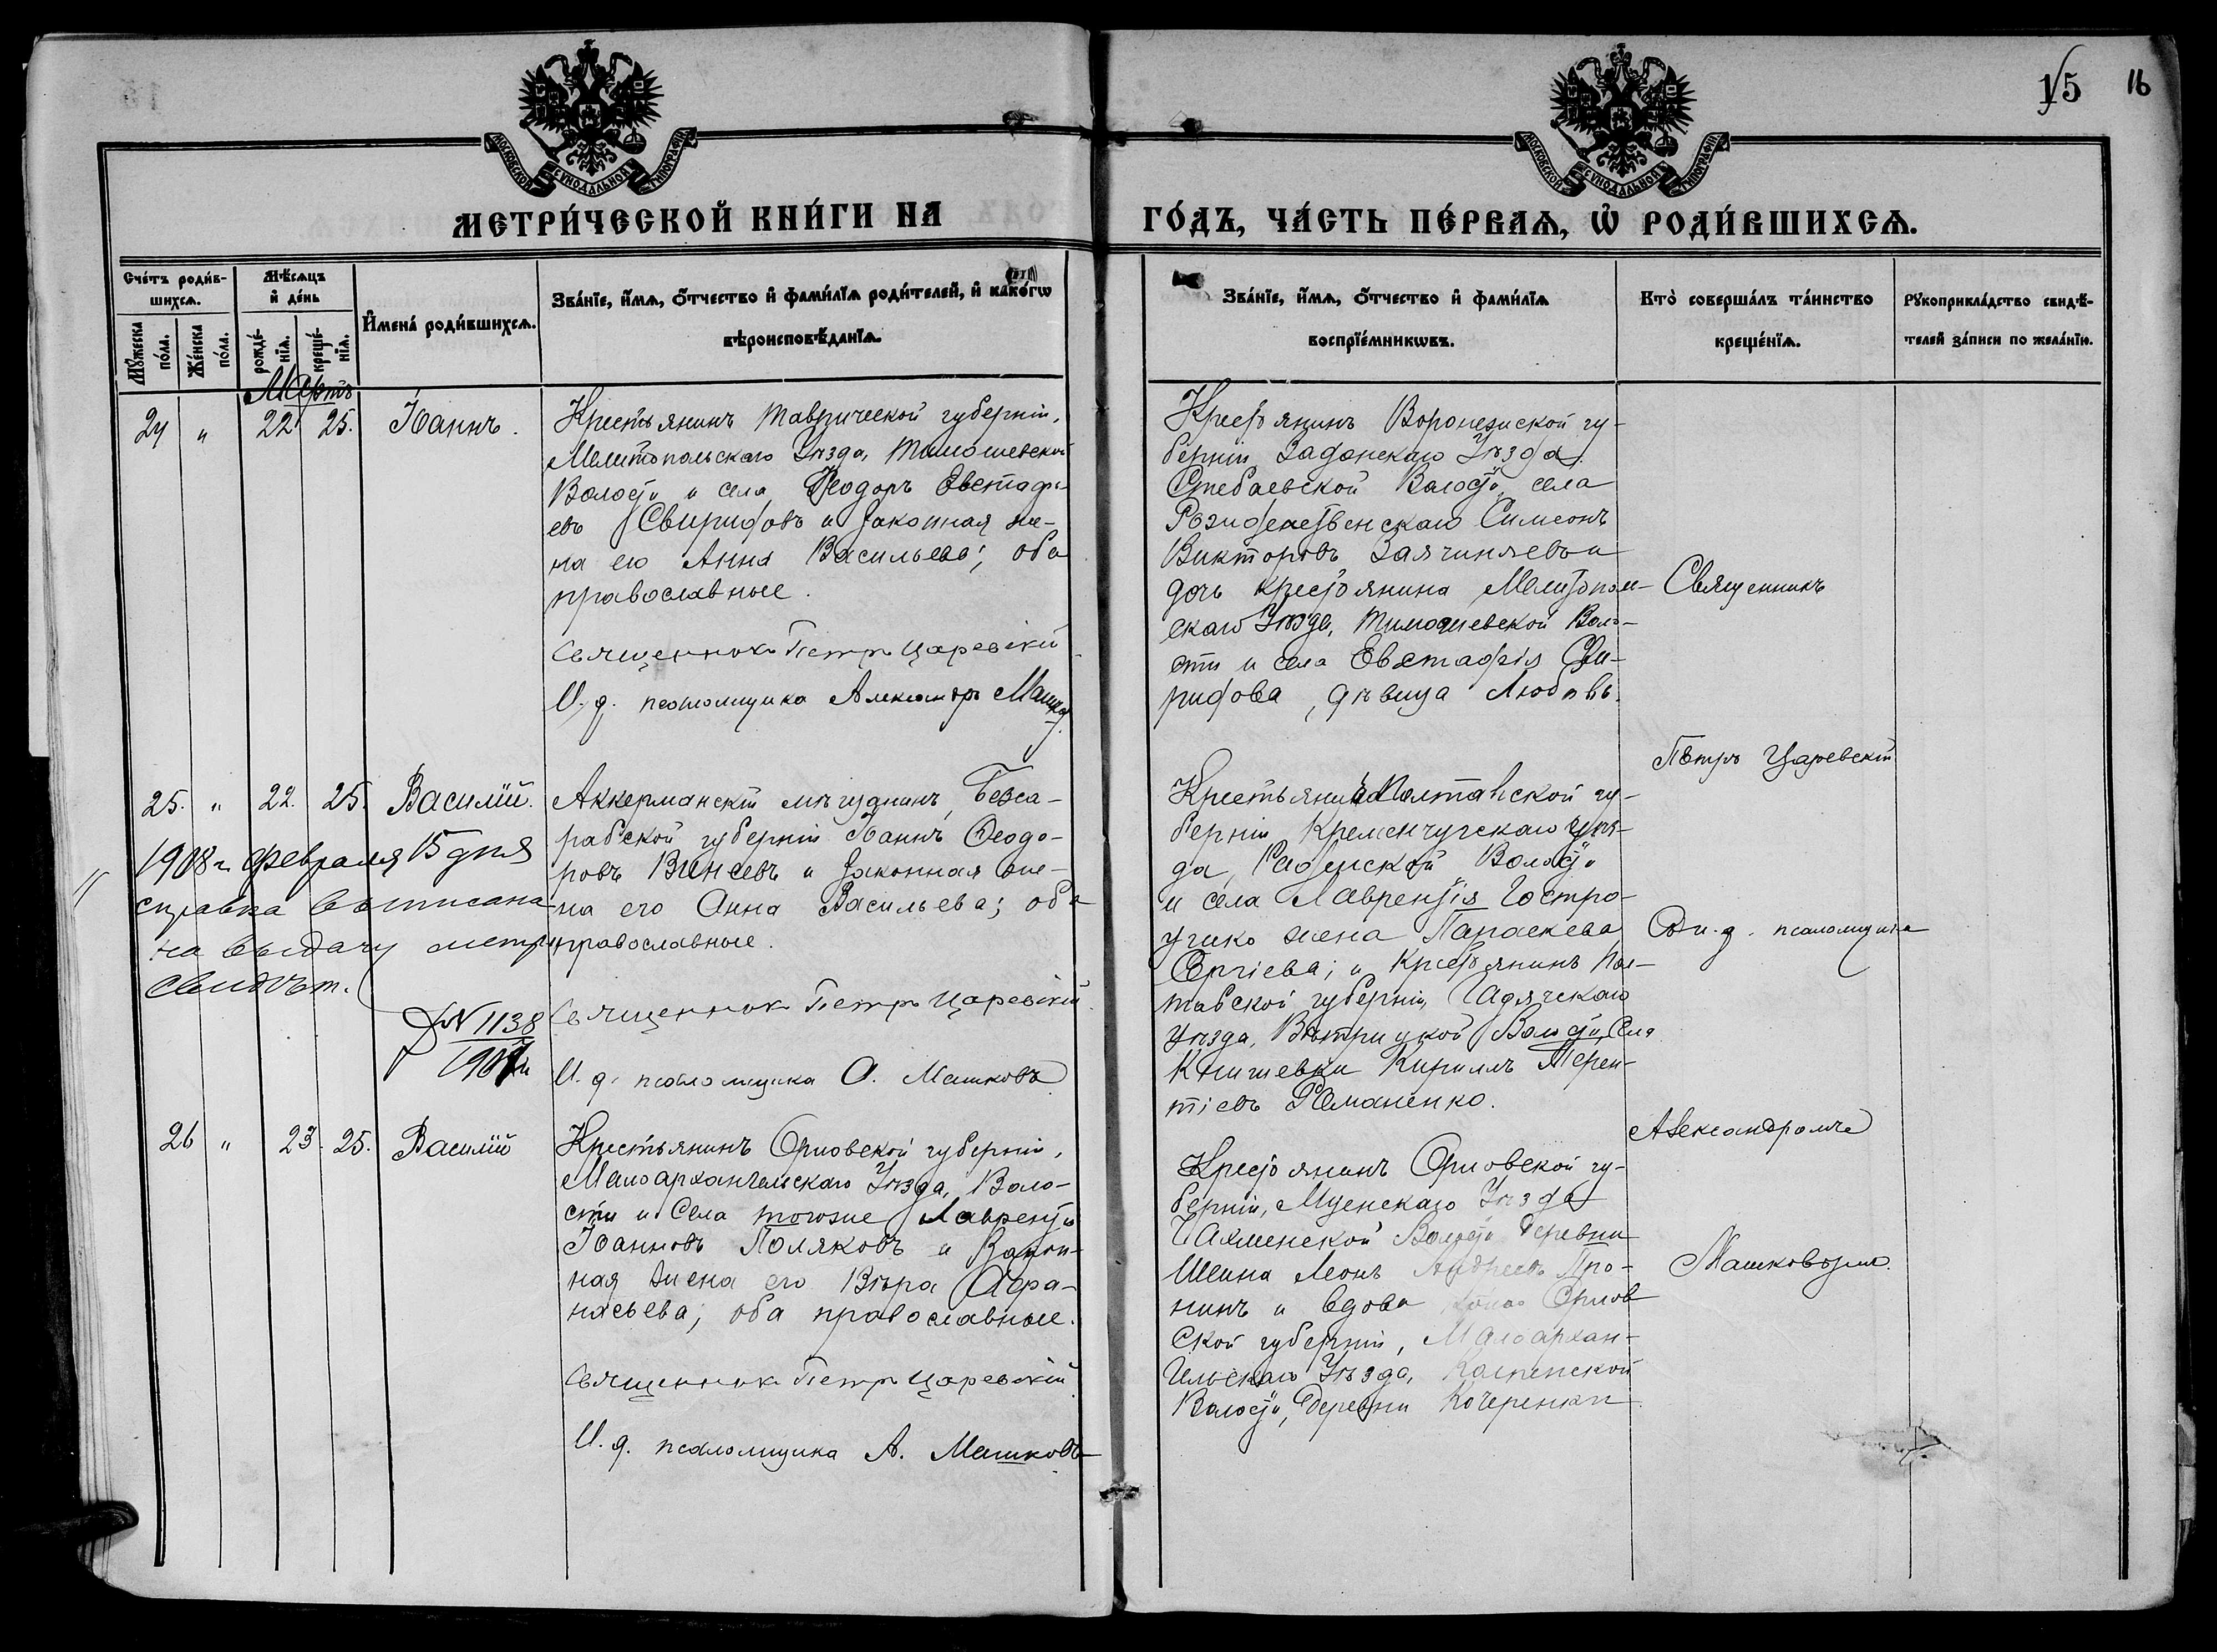 15 16
МОСКОВСКОЙ СѴНОДАЛЬНОЙ ТИПОГРАФІИ
МОСКОВСКОЙ СѴНОДАЛЬНОЙ ТИПОГРАФІИ
МЕТРИ́ЧЕСКОЙ КНИ́ГИ НА
ГО́ДЪ, ЧА́СТЬ ПЕ́РВАѦ, Ѡ҆ РОДИ́ВШИХСѦ.
Сче́тъ роди́в-
шихсѧ.
Мꙋ́жеска по́ла.
Же́нска по́ла.
Мѣ́сѧцъ
и҆ де́нь
рожде́-
нїѧ.
креще́-
нїѧ.
И҆мена́ роди́вшихсѧ.
Зва́нїе, и҆́мѧ, ѻ҆́тчество и҆ фами́лїѧ роди́телей, и҆ како́гѡ
вѣроисповѣ́данїѧ.
Зва́нїе, и҆́мѧ, ѻ҆́тчество и҆ фами́лїѧ
воспрїе́мникѡвъ.
Кто̀ соверша́лъ та́инство
креще́нїѧ.
Рꙋкоприкла́дство свидѣ́-
телей за́писи по жела́нїю.
Мартъ
24 " 22 25. Іоаннъ.
Крестьянинъ Таврической губерніи,
Мелитопольскаго Уѣзда, Тимошевской
Волости и села Ѳеодоръ Евстафі-
евъ Свиридовъ и законная же-
на его Анна Васильева; оба
православные.
Священникъ Петръ Царевскій
И. д. псаломщика Александръ Машков
Крестьянинъ Воронежской гу-
берніи Задонскаго Уѣзда
Стебаевской Волости, села
Рождественскаго Симеонъ
Викторовъ и
дочь крестьянина Мелитополь-
скаго Уѣзда, Тимошевской Воло-
сти и села Евстафія Сви-
ридова, дѣвица Любовь.
Священникъ
Петръ Царевскій
25. " 22. 25. Василій.
Аккерманскій мѣщанинъ, Бесса-
рабской губерніи Іоаннъ Ѳеодо-
ровъ и законная же-
на его Анна Васильева; оба
православные.
Священникъ Петръ Царевскій
И. д. псаломщика А. Машковъ
1908 г. февраля 15 дня
справка выписана
на выдачу метри
свидѣт.
№ 1138
1907 г.
Крестьянинъ Полтавской гу-
берніи Кременчугскаго Уѣз-
да, Волости
и села Лаврентія Гостро-
жена Параскева
Сергіева; и крестьянинъ Пол-
тавской губерніи, Гадячскаго
Уѣзда, Волости, Села
Книшевки Кириллъ Терен-
тіевъ Романенко.
Съ и. д. псаломщика
Александромъ
Машковымъ.
26 " 23. 25. Василій
Крестьянинъ Орловской губерніи,
Малоархангельскаго Уѣзда, Воло-
сти и Села тогоже Лаврентій
Іоанновъ Поляковъ и Закон-
ная жена его Вѣра Афа-
насьева; оба православные.
Священникъ Петръ Царевскій
И. д. псаломщика А. Машковъ
Крестьянинъ Орловской гу-
берніи, Мценскаго Уѣзда
Волости Деревни
Шеина Леонъ Андреевъ Про-
нинъ и вдова Орлов
ской губерніи, Малоархан-
гельскаго Уѣзда,
Волости, Деревни Кочеренки